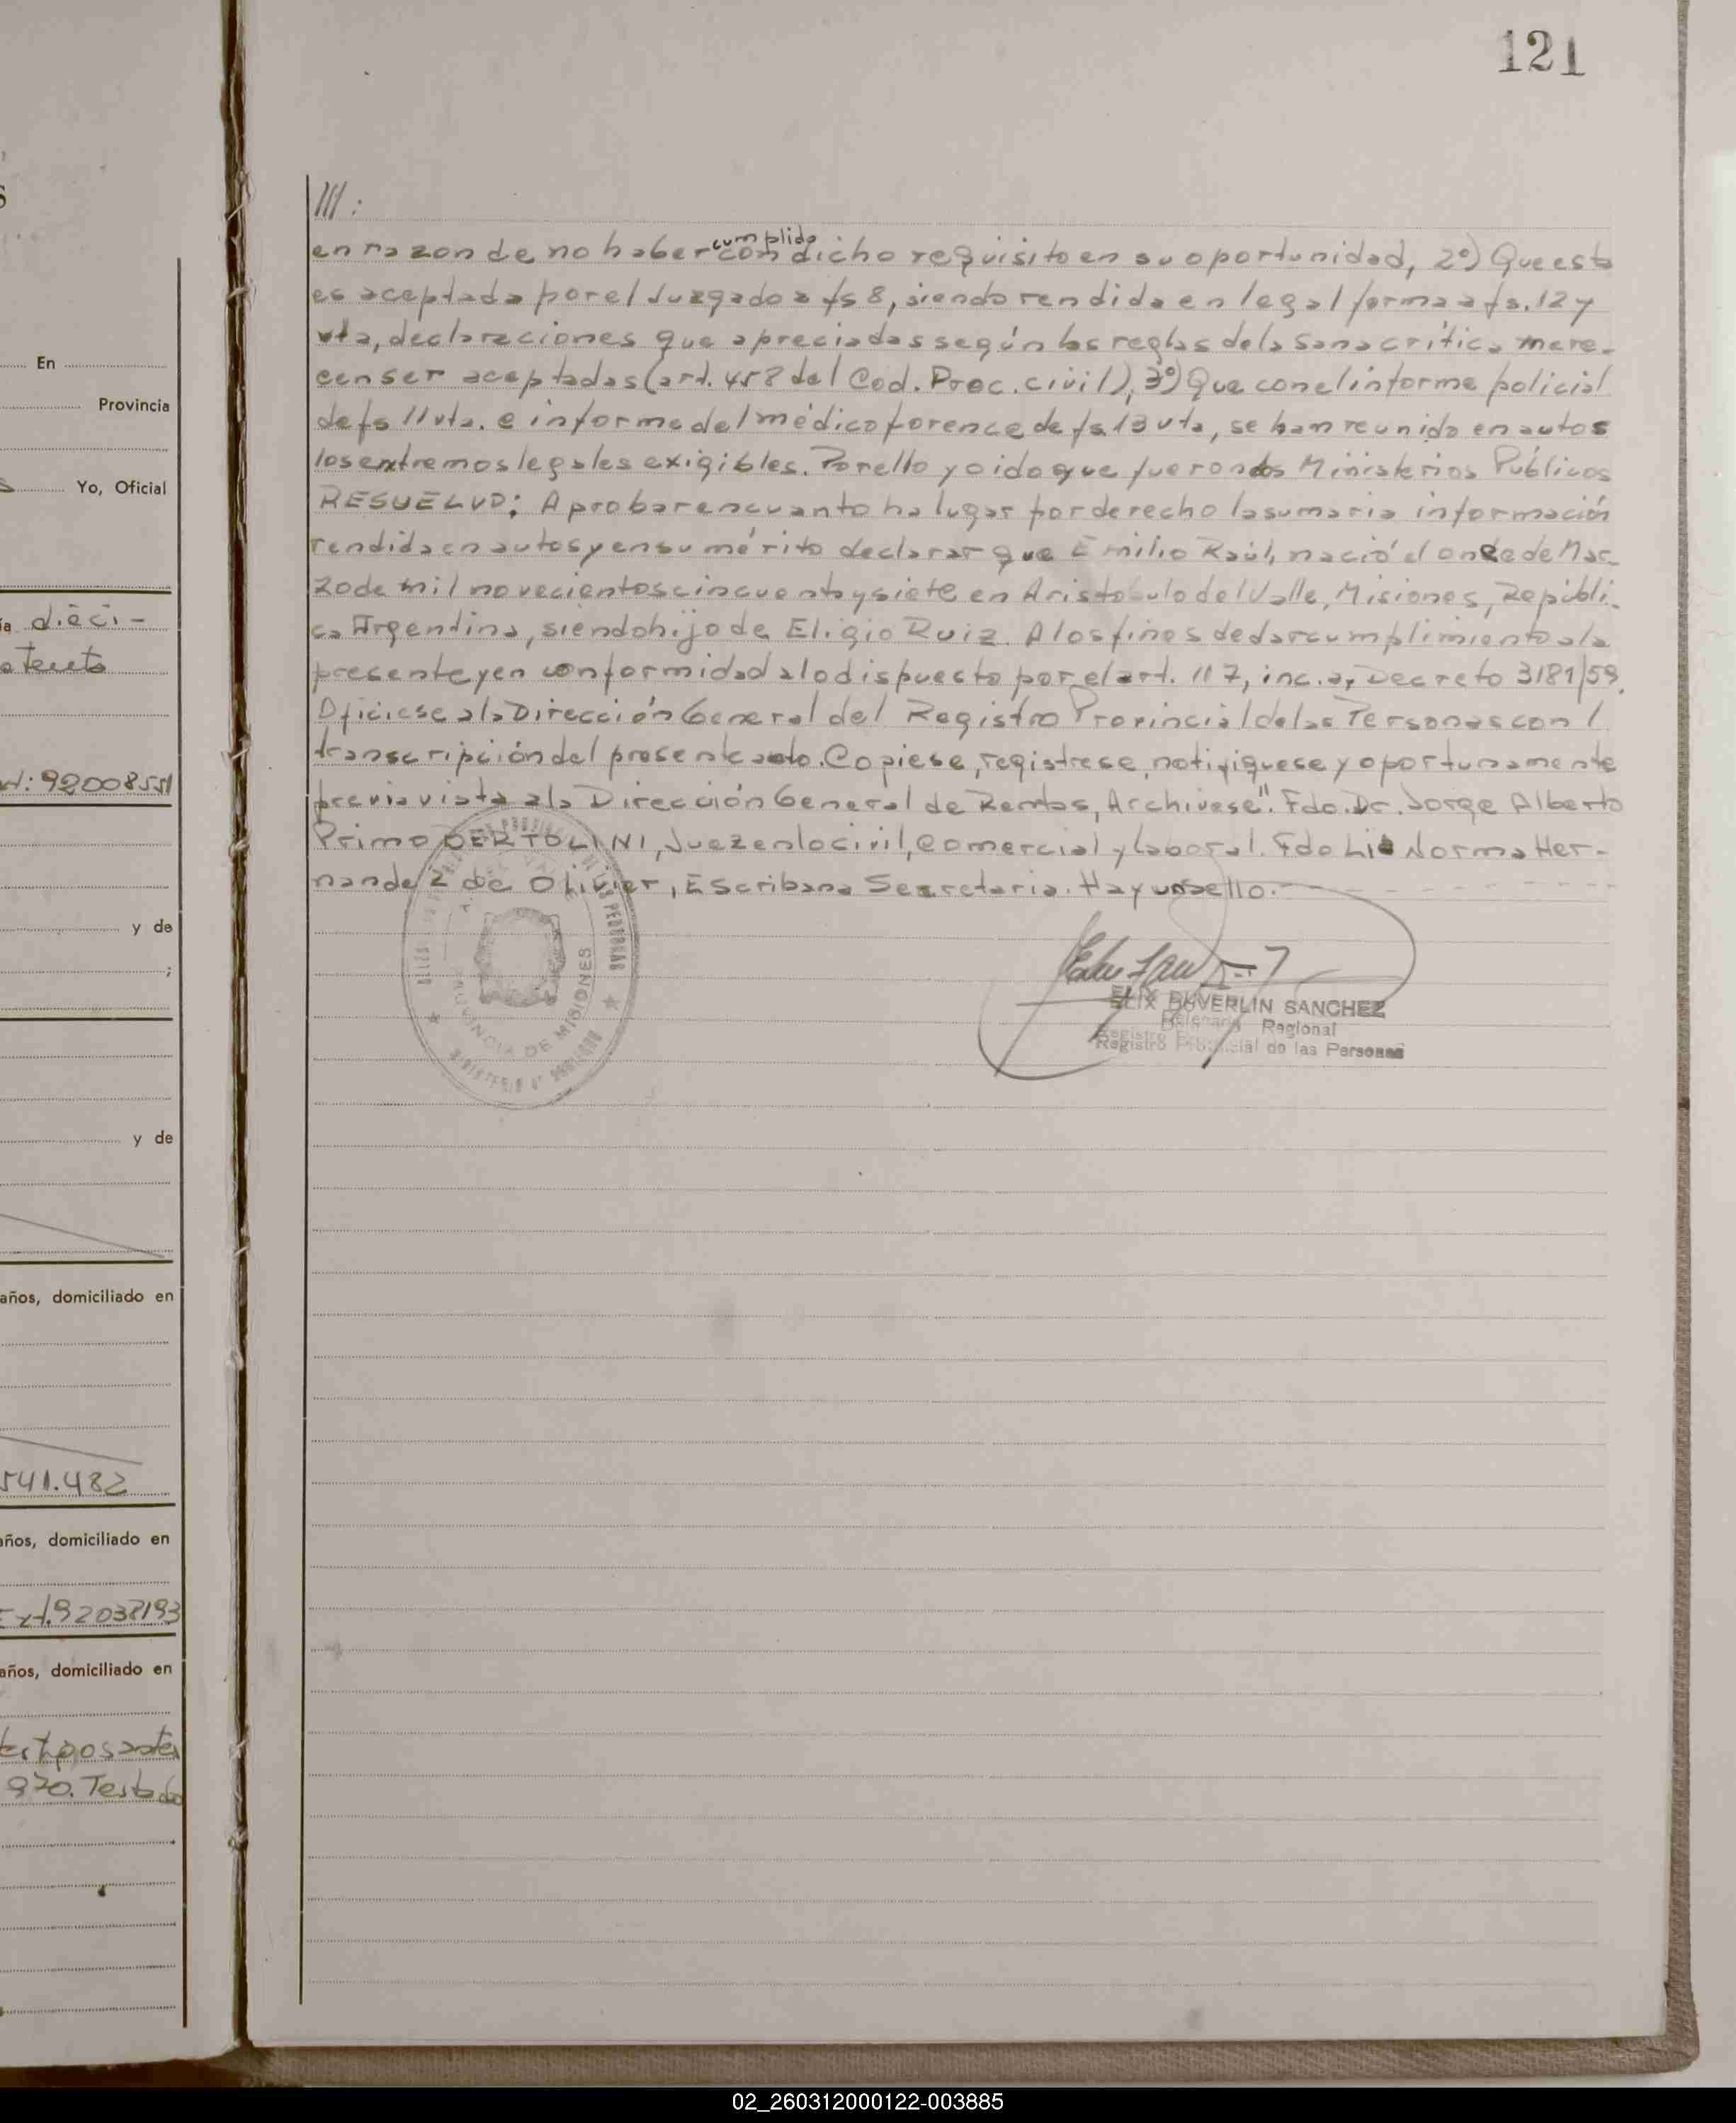 121
///:
en razon de no haber cumplido con dicho requisito en su oportunidad, 2º) Que esta
es aceptada por el Juzgado a fs 8, siendo rendida en legal forma a fs. 12 y
vta, declaraciones que apreciadas según las reglas de la sana crítica mere-
cen ser aceptadas (art. 458 del Cod. Proc. civil), 3º) Que con el informe policial
de fs 11 vta. e informe del médico forence de fs 13 vta, se han reunido en autos
los extremos legales exigibles. Por ello y oido que fueron los Ministerios Públicos
RESUELVO: Aprobar en cuanto ha lugar por derecho la sumaria información
rendida en autos y en su mérito declarar que Emilio Raúl, nació el once de Mar-
zo de mil novecientos cincuenta y siete en Aristobulo del Valle, Misiones, Repúbli-
ca Argentina, siendo hijo de Eligio Ruiz. A los fines de dar cumplimiento a la
presente y en conformidad a lo dispuesto por el art. 117, inc. a, Decreto 3181/59.
Ofíciese a la Dirección General del Registro Provincial de las Personas con /
transcripción del presente auto. Copiese, registrese, notifiquese y oportunamente
previa vista a la Dirección General de Rentas, Archivese". Fdo. Dr. Jorge Alberto
Primo BERTOLINI, Juez en lo civil, Comercial y laboral. Fdo Lia Norma Her-
nandez de Olivier, Escribana Secretaria. Hay un sello.
PROVINCIA DE MISIONES
ELIX DUVERLIN SANCHEZ
Delegado Regional
Registro Provincial de las Personas
En
Provincia
Yo, Oficial
dieci-
92008551
y de
y de
años, domiciliado en
541.482
años, domiciliado en
Ext. 92038193
años, domiciliado en
970. Testado
02_260312000122-003885